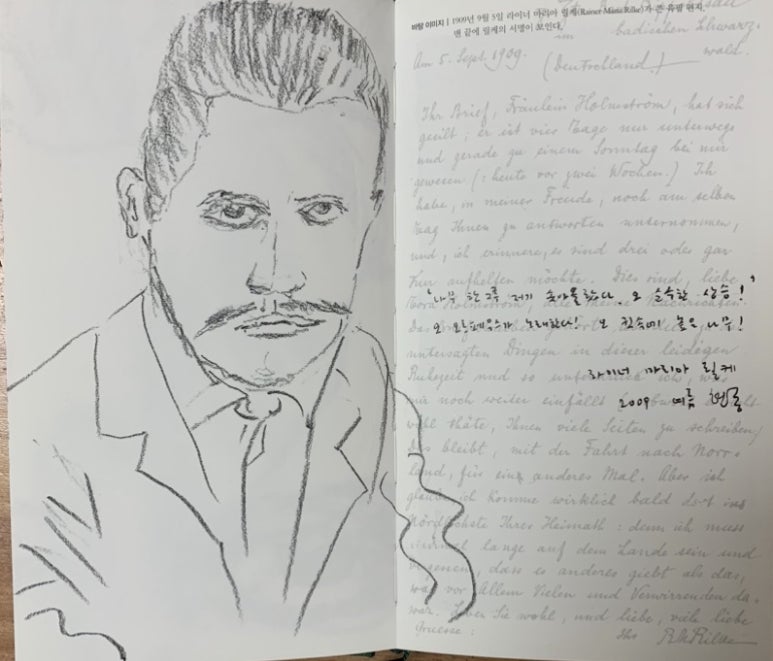 바탕 이미지 | 1909년 9월 5일 라이너 마리아 릴케(Rainer Maria Rilke)가 쓴 육필 편지.
맨 끝에 릴케의 서명이 보인다.
im badischen Schwarz-
wald.
Am 5. Sept. 1909.
(Deutschland)
Ihr Brief, Fräulein Holmström, hat sich
geeilt; er ist vier Tage nur unterwegs
und gerade zu einem Sonntag bei mir
gewesen (: heute vor zwei Wochen.) Ich
habe, in meiner Freude, noch am selben
Tag Ihnen zu antworten unternommen,
und, ich erinnere, es sind drei oder gar
aufhelfen möchte. Dies sind, liebe
'나무 한 그루 저기 솟아올랐다 오 순수한 상승!
오 오르페우스가 노래한다! 오 귓속의 높은 나무!
untersagten Dingen in dieser leidigen
라이너 마리아 릴케
Ruhezeit und so
noch weiter einfällt
2009 여름
voll thäte, Ihnen viele Seiten zu schreiben,
das bleibt, mit der Fahrt nach Norr-
land, für ein anderes Mal. Aber ich
glaube ich komme wirklich bald dort ins
Nördlichste Ihrer Heimath: denn ich muss
lange auf dem Lande sein und
dass es anderes giebt als das,
was vor Allem Vielen und Verwirrenden da
war. Leben Sie wohl, und liebe, viele liebe
Gruesse:
Ihr RMRilke